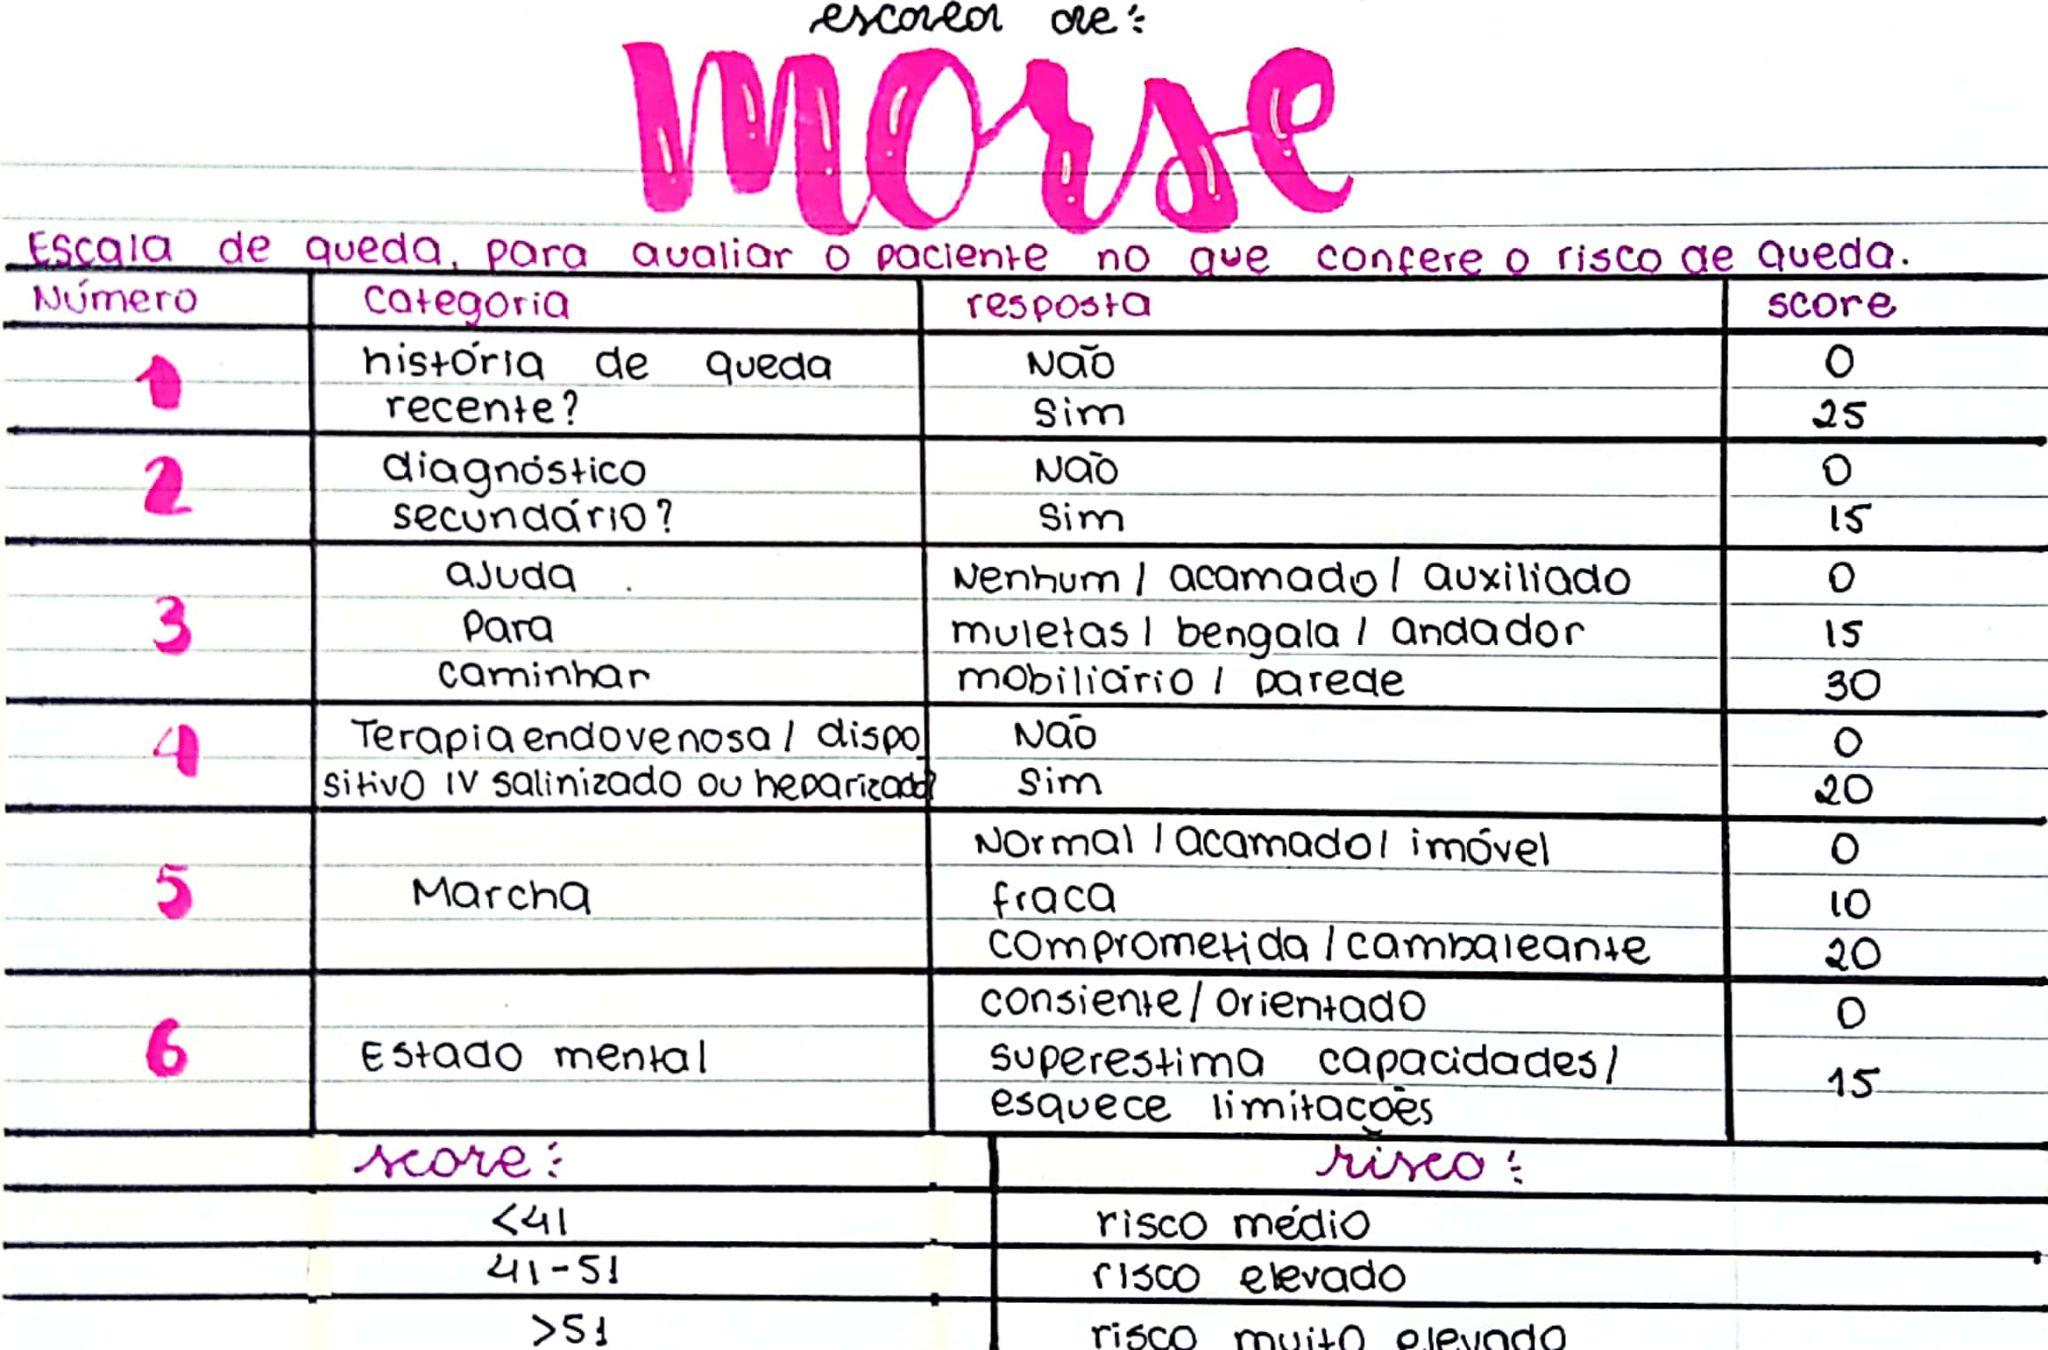 escala de:
morse
Escala de queda, para avaliar o paciente no que confere o risco de queda.
Número categoria resposta score
1 história de queda recente? Não 0
Sim 25
2 diagnóstico secundário? Não 0
Sim 15
3 ajuda para caminhar Nenhum / acamado / auxiliado 0
muletas / bengala / andador 15
mobiliário / parede 30
4 Terapia endovenosa / dispositivo IV salinizado ou heparizado? Não 0
Sim 20
5 Marcha Normal / acamado / imóvel 0
fraca 10
comprometida / cambaleante 20
6 Estado mental consiente / orientado 0
superestima capacidades / esquece limitações 15
score: risco:
<41 risco médio
41-51 risco elevado
>51 risco muito elevado